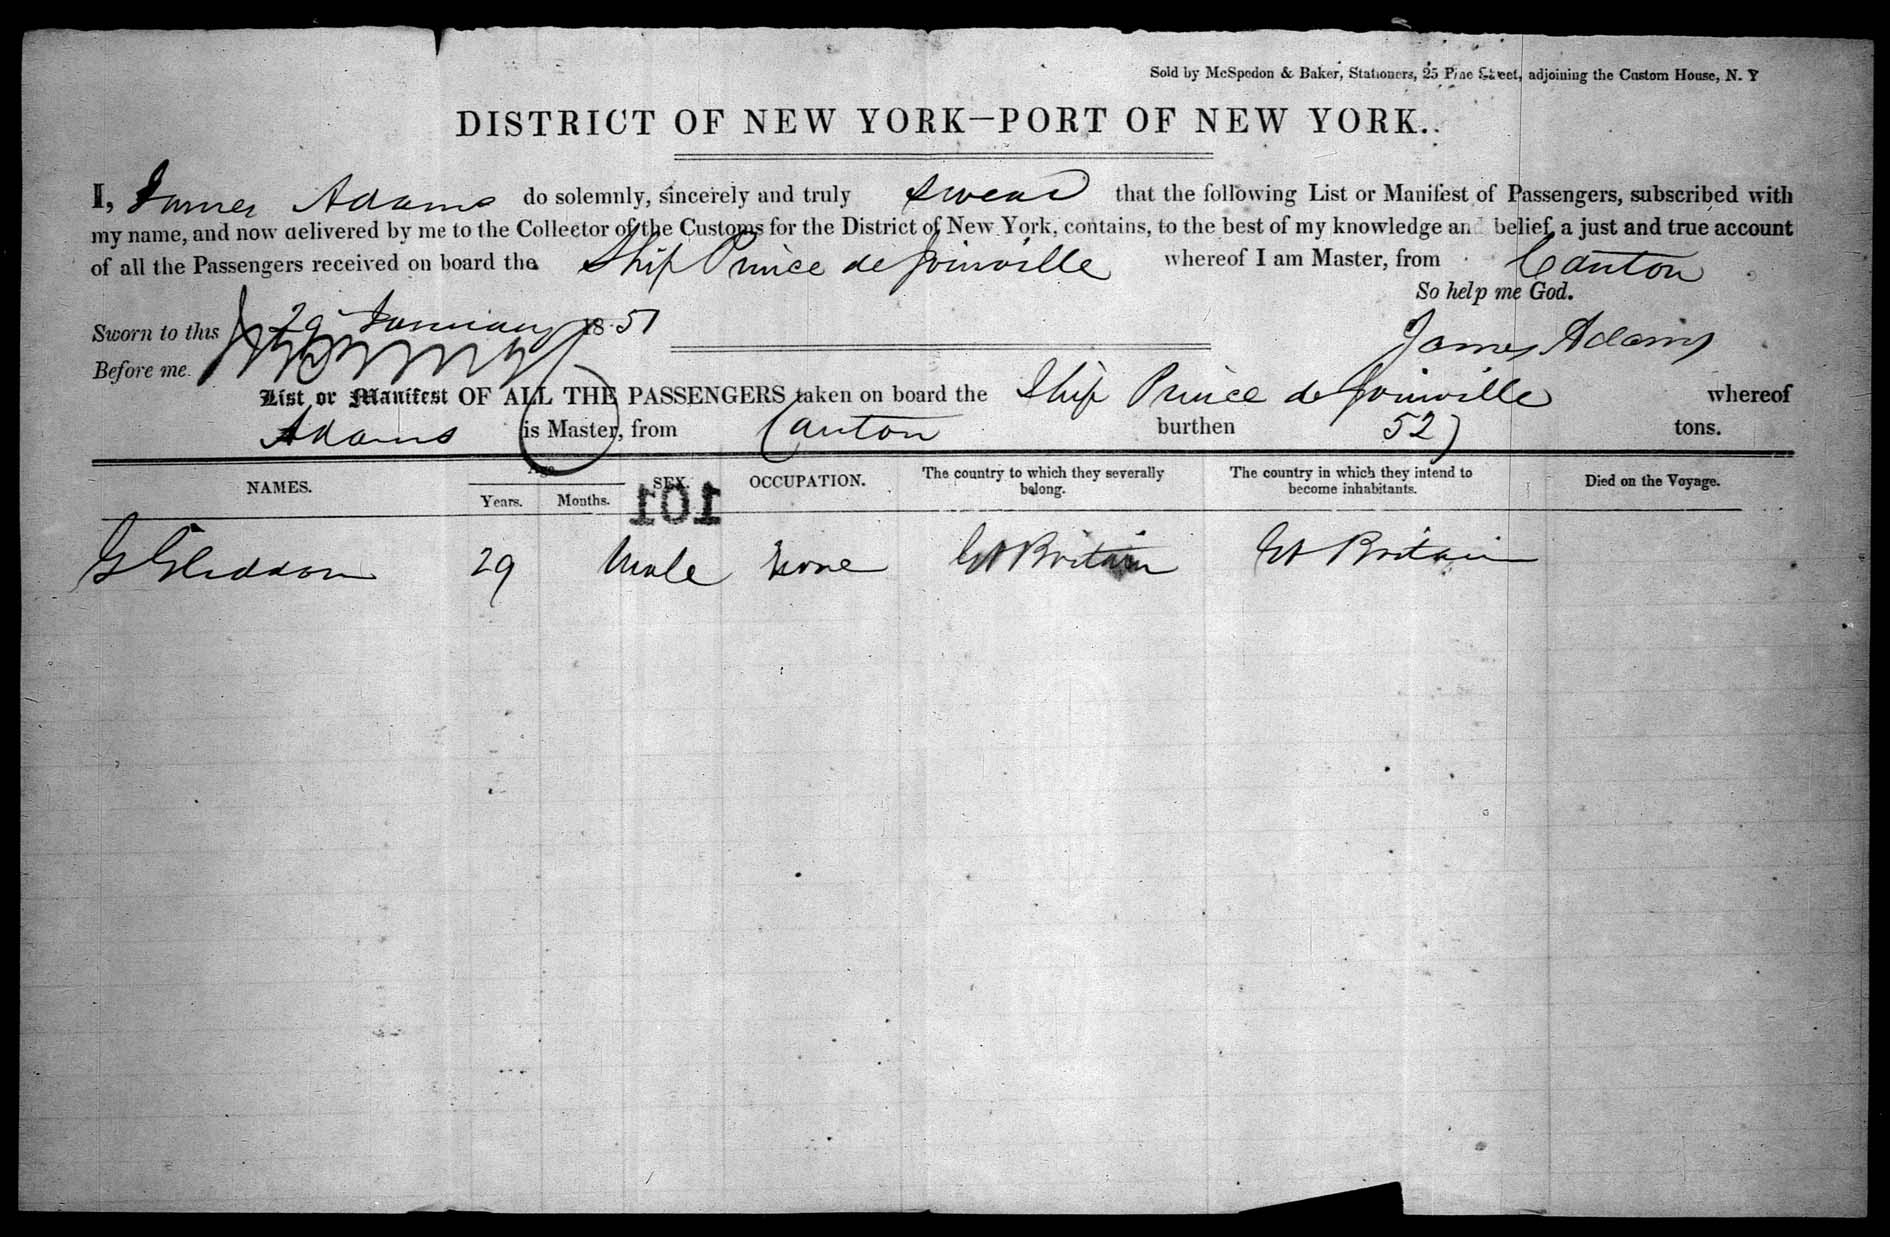 Sold by McSpedon & Baker, Stationers, 25 Pine Street, adjoining the Custom House, N. Y
DISTRICT OF NEW YORK—PORT OF NEW YORK.
I, James Adams do solemnly, sincerely and truly swear that the following List or Manifest of Passengers, subscribed with
my name, and now delivered by me to the Collector of the Customs for the District of New York, contains, to the best of my knowledge and belief, a just and true account
of all the Passengers received on board the Ship Prince de Joinville whereof I am Master, from Canton
So help me God.
Sworn to this 29 January 1851
James Adams
Before me
List or Manifest OF ALL THE PASSENGERS taken on board the Ship Prince de Joinville whereof
Adams is Master, from Canton burthen 527 tons.
NAMES. Age. Years. Months. SEX. OCCUPATION. The country to which they severally belong. The country in which they intend to become inhabitants. Died on the Voyage.
101
G Gliddon 29 Male None Gt Britain Gt Britain